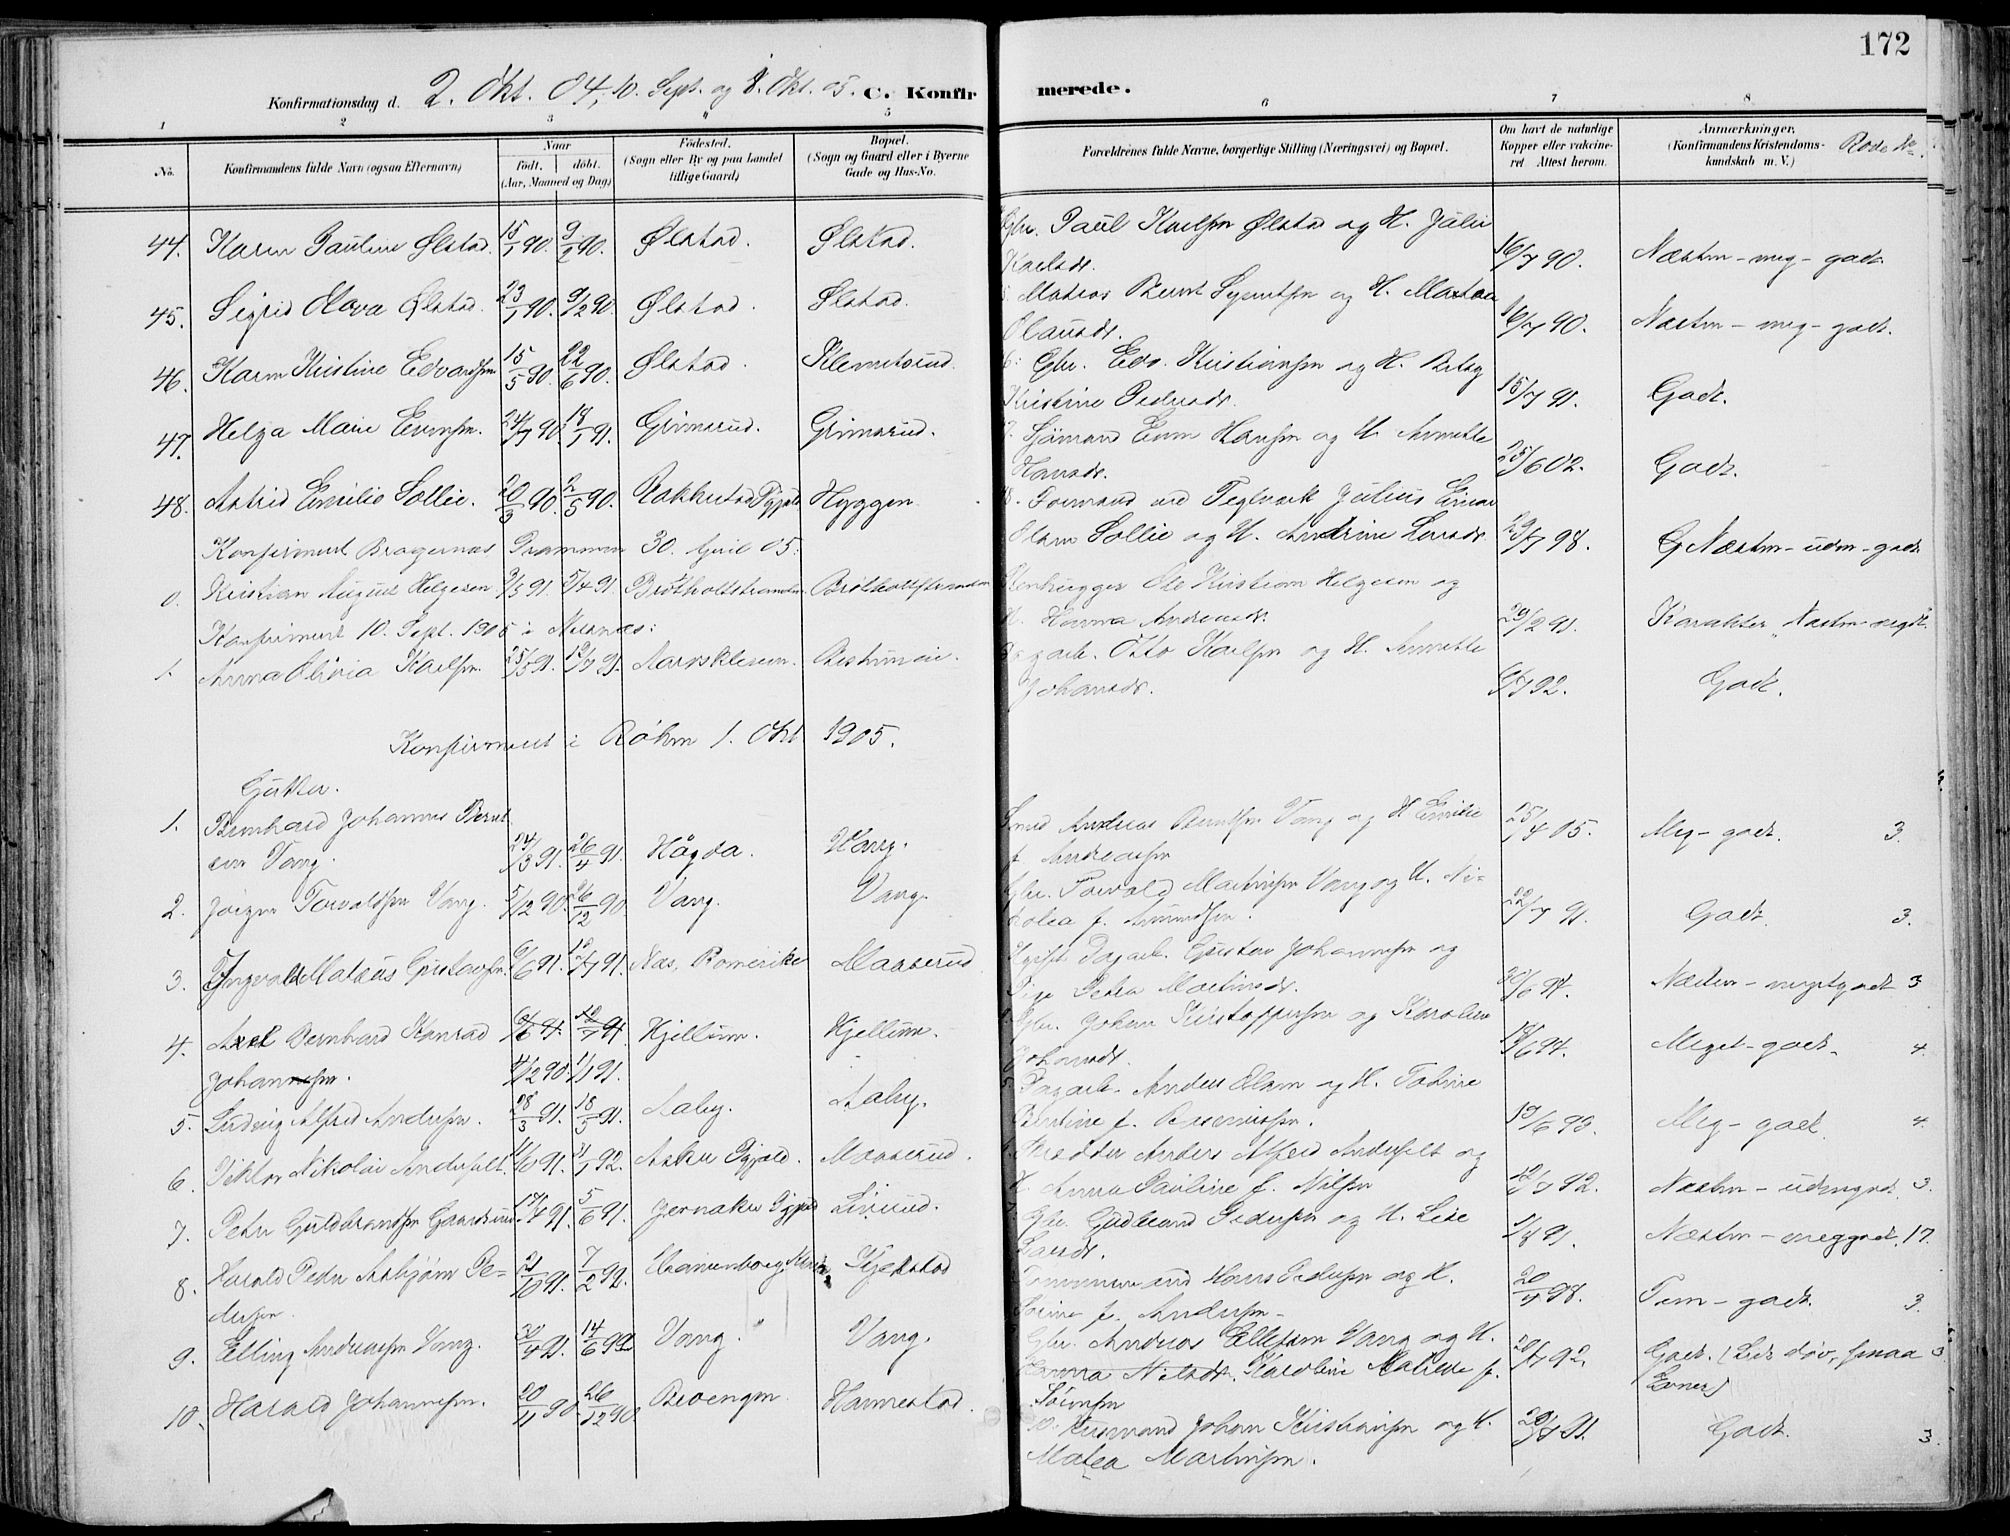 172
Konfirmationsdag d. 2. Okt. 04, 10. Sept. og 1. Okt. 05. C. Konfirmerede.
1 2 3 4 5 6 7 8
No.
Konfirmandens fulde Navn (ogsaa Efternavn)
Naar
født. døbt.
(Aar, Maaned og Dag)
Fødested.
(Sogn eller By og paa Landet tillige Gaard)
Bopæl.
(Sogn og Gaard eller i Byerne Gade og Hus-No.
Forældrenes fulde Navne, borgerlige Stilling (Næringsvei) og Bopæl.
Om havt de naturlige Kopper eller vaccineret Attest herom.
Anmærkninger.
(Konfirmandens Kristendomskundskab m. V.)
Rode No.
44. Karen Pauline Ølstad. 15/1 90. 9/2 90. Ølstad. Ølstad. Gbr. Paul Karlsen Ølstad og H. Julie
Karlsdr. 16/7 90. Næsten - meg - godt.
45. Sigrid Ølstad. 23/1 90. 9/2 90. Ølstad. Ølstad. Matros Bernt Syvertsen og H. Martea
Olausdr. 16/7 90. Næsten - meg - godt.
46. Karen Kristine Edvardsen 15/5 90. 22/6 90. Ølstad. Klemetsrud. Gbr. Edv. Kristiansen og H. Betsy
Kristine Pedersdr. 15/7 91. Godt.
47. Helga Marie Evensen. 24/7 90 18/1 91. Grimsrud. Grimsrud. Sjømand Even Hansen og H. Annette
Hansdr. 25/6 02. Godt.
48. Astrid Emilie Sollie. 20/3 90. 2/5 90. Rakkestad Pgjæld Hyggen. Formand ved Teglværk Julius Einar
Olsen Sollie og H. Andrine Larsdr. 29/7 98. Næsten - udm - godt
Konfirmeret Bragernæs Drammen 30. April 05:
0. Kristian August Helgesen 9/3 91. 5/4 91. Stenhugger Ole Kristian Helgesen og
H. Hanna Andreasdr. 29/2 91. Karakter "Næsten - megodt.
Konfirmeret 10. Sept. 1905 i Nesnæs:
1. Anna Olivia Karlsen 25/5 91. 12/7 91. Otto Karlsen og H. Annette
Johansdr. 6/7 92. Godt.
Konfirmeret i Røken 1. Okt. 1905.
Gutter.
1. Bernhard Johannes Berntsen
Vang. 24/3 91. 26/4 91. Høgda. Vang. Smed Andreas Berntsen Vang og H. Emilie
f. Andreassen 25/4 05. Meg - godt. 3.
2. Jørgen Torvaldsen Vang. 5/12 90. 26/12 90. Vang. Vang. Gbr. Torvald Martinsen Vang og H. Nikolea
f. Amundsen. 22/7 91. Godt. 3.
3. Yngvald Mateus Gustavsen. 6/6 91. 12/7 91. Næs, Romerike Maaserud. Dagarb. Gustav Johannesen og
Pige Petra Martinsdr. 30/6 94. Næsten - megetgodt 3
4. Axel Bernhard Konrad
Johannesen. 4/12 90. 1/1 91. Kjellum. Kjellum. Gbr. Johan Kristoffersen og Karoline
Johansdr. 19/6 94. Meget - godt. 4.
5. Ludvig Alfred Andersen. 28/3 91. 18/5 91. Aaby. Aaby. Dagarb. Anders Olsen og H. Tobine
Bentine f. 19/6 93. Meg - godt. 4.
6. Viktor Nikolai 92. Asker Pgjæld. Maaserud. Skrædder Anders Alfred og
H. Anna Pauline f. Nilsen 12/7 92. Næsten - udmgodt. 3.
7. Peter Guldbrandsen Gaardsrud 17/4 91. 5/6 91. Jevnaker Pgjæld Linrud. Gbr. Gudbrand Pedersen og H. Lise
Larsdr. 1/8 91. Næsten - meggodt. 17.
8. Harald Peder Asbjørn Pedersen.
21/10 91. 7/2 92. Kjekstad Hans Pedersen og H.
Josine f. Andersen. 20/4 98. Tem - godt. 3.
9. Elling Andreassen Vang. 30/4 91. 14/6 91 Vang. Vang. Gbr. Andreas Ellefsen Vang og H.
Emma Nilsdr. Karoline Matilde f.
Sørensen 20/7 92. Godt. (Lidt døv, smaa
Evner) 3
10. Harald Johannesen. 20/11 90. 26/12 90. Brevengen. Hammestad. Kusmand Johan Kristiansen og H.
Matea Martinsen. 29/7 91. Godt. 3.